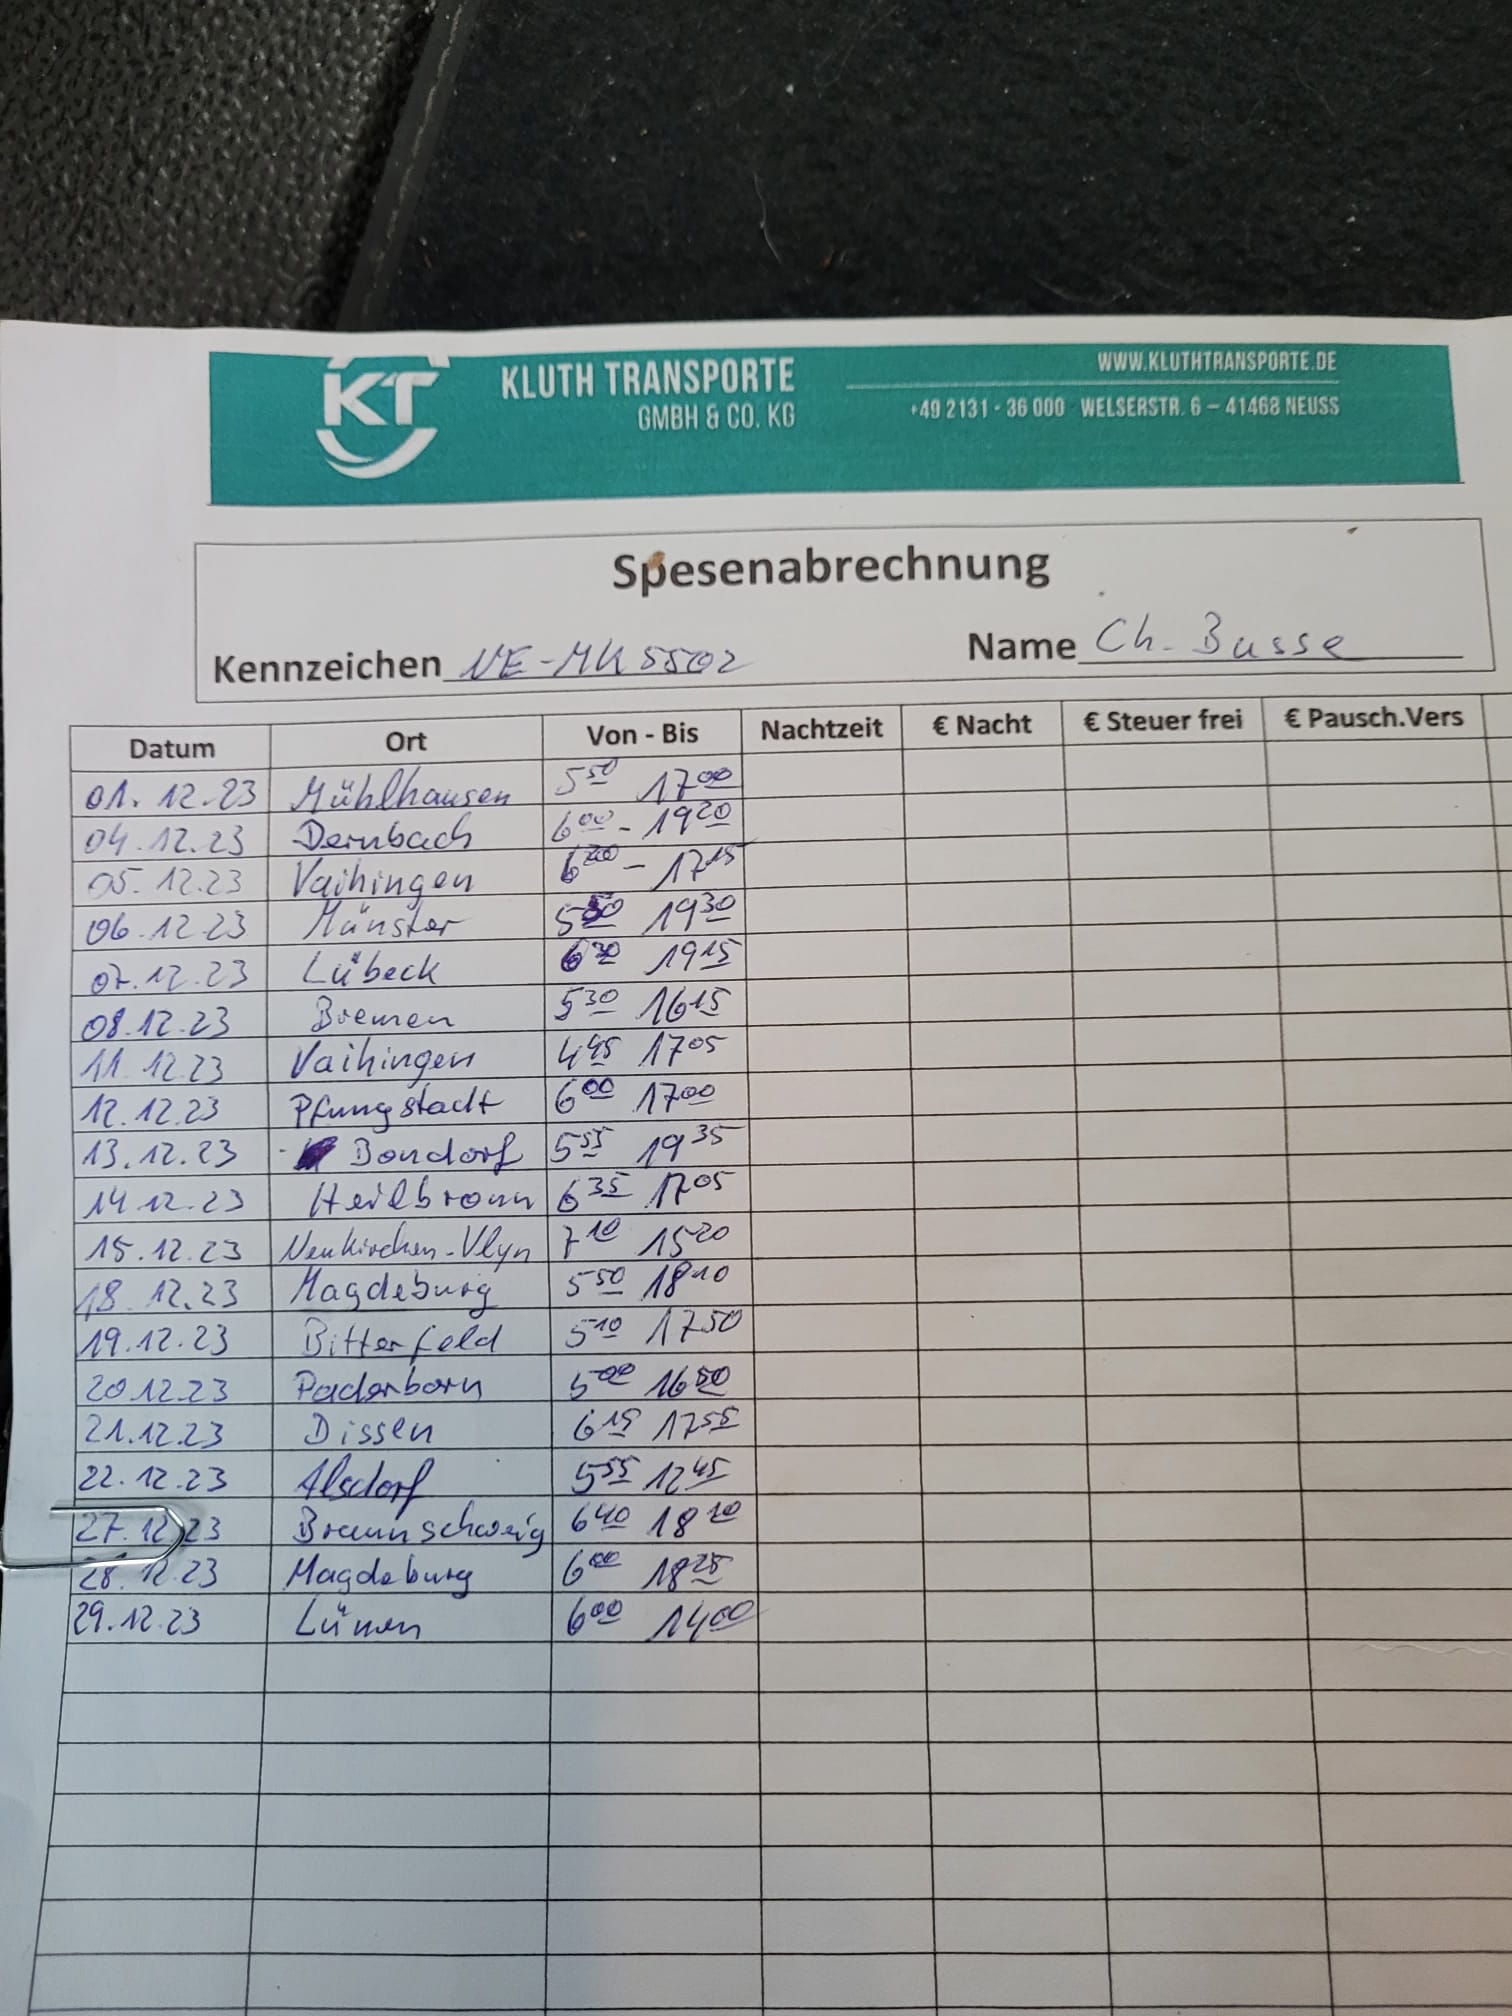 KT
KLUTH TRANSPORTE
GMBH & CO. KG
WWW.KLUTHTRANSPORTE.DE
+49 2131 - 36 000 WELSERSTR. 6 – 41468 NEUSS
Spesenabrechnung
Kennzeichen NE-MK 5502 Name Ch. Busse
Datum Ort Von - Bis Nachtzeit € Nacht € Steuer frei € Pausch.Vers
01.12.23 Mühlhausen 5 50 17 00
04.12.23 Dernbach 6 00 - 19 20
05.12.23 Vaihingen - 17 15
06.12.23 Münster 19 30
07.12.23 Lübeck 6 30 19 15
08.12.23 Bremen 5 30 16 15
11.12.23 Vaihingen 4 45 17 05
12.12.23 Pfungstadt 6 00 17 00
13.12.23 Bondorf 5 55 19 35
14.12.23 Heilbronn 6 35 17 05
15.12.23 Neukirchen-Vlyn 7 10 15 20
18.12.23 Magdeburg 5 50 18 10
19.12.23 Bitterfeld 5 10 17 50
20.12.23 Paderborn 5 00 16 50
21.12.23 Dissen 6 15 17 55
22.12.23 Alsdorf 5 55 12 45
27.12.23 Braunschweig 6 40 18 20
28.12.23 Magdeburg 6 00 18 25
29.12.23 Lünen 6 00 14 00